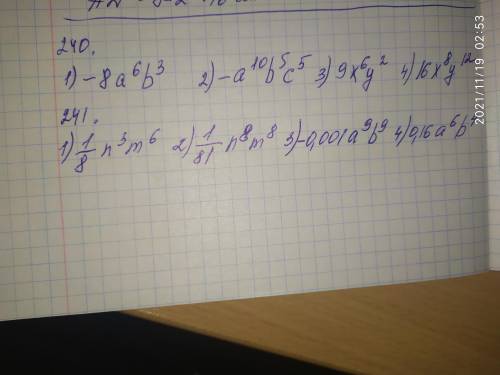 240.
1) -8a⁶b³ 2) -a¹⁰b⁵c⁵ 3) 9x⁶y² 4) 16x⁸y¹²
241.
1) 1/8 n³m⁶ 2) 1/81 n⁸m⁸ 3) -0,001a⁹b⁹ 4) 0,16a⁶b
2021/11/19 02:53